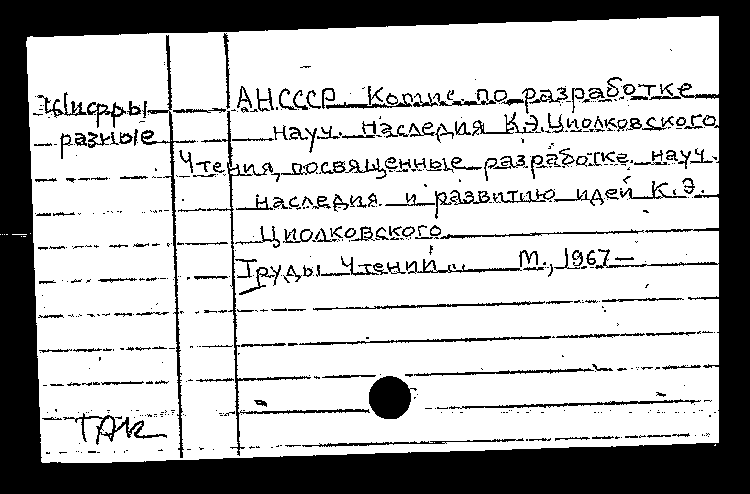 Шифры
разные
АН СССР. Комис. по разработке
науч. наследия К.Э.Циолковского
Чтения, посвященные разработке науч.
наследия и развитию идей К.Э.
Циолковского.
Труды Чтений... М., 1967—
ТАК